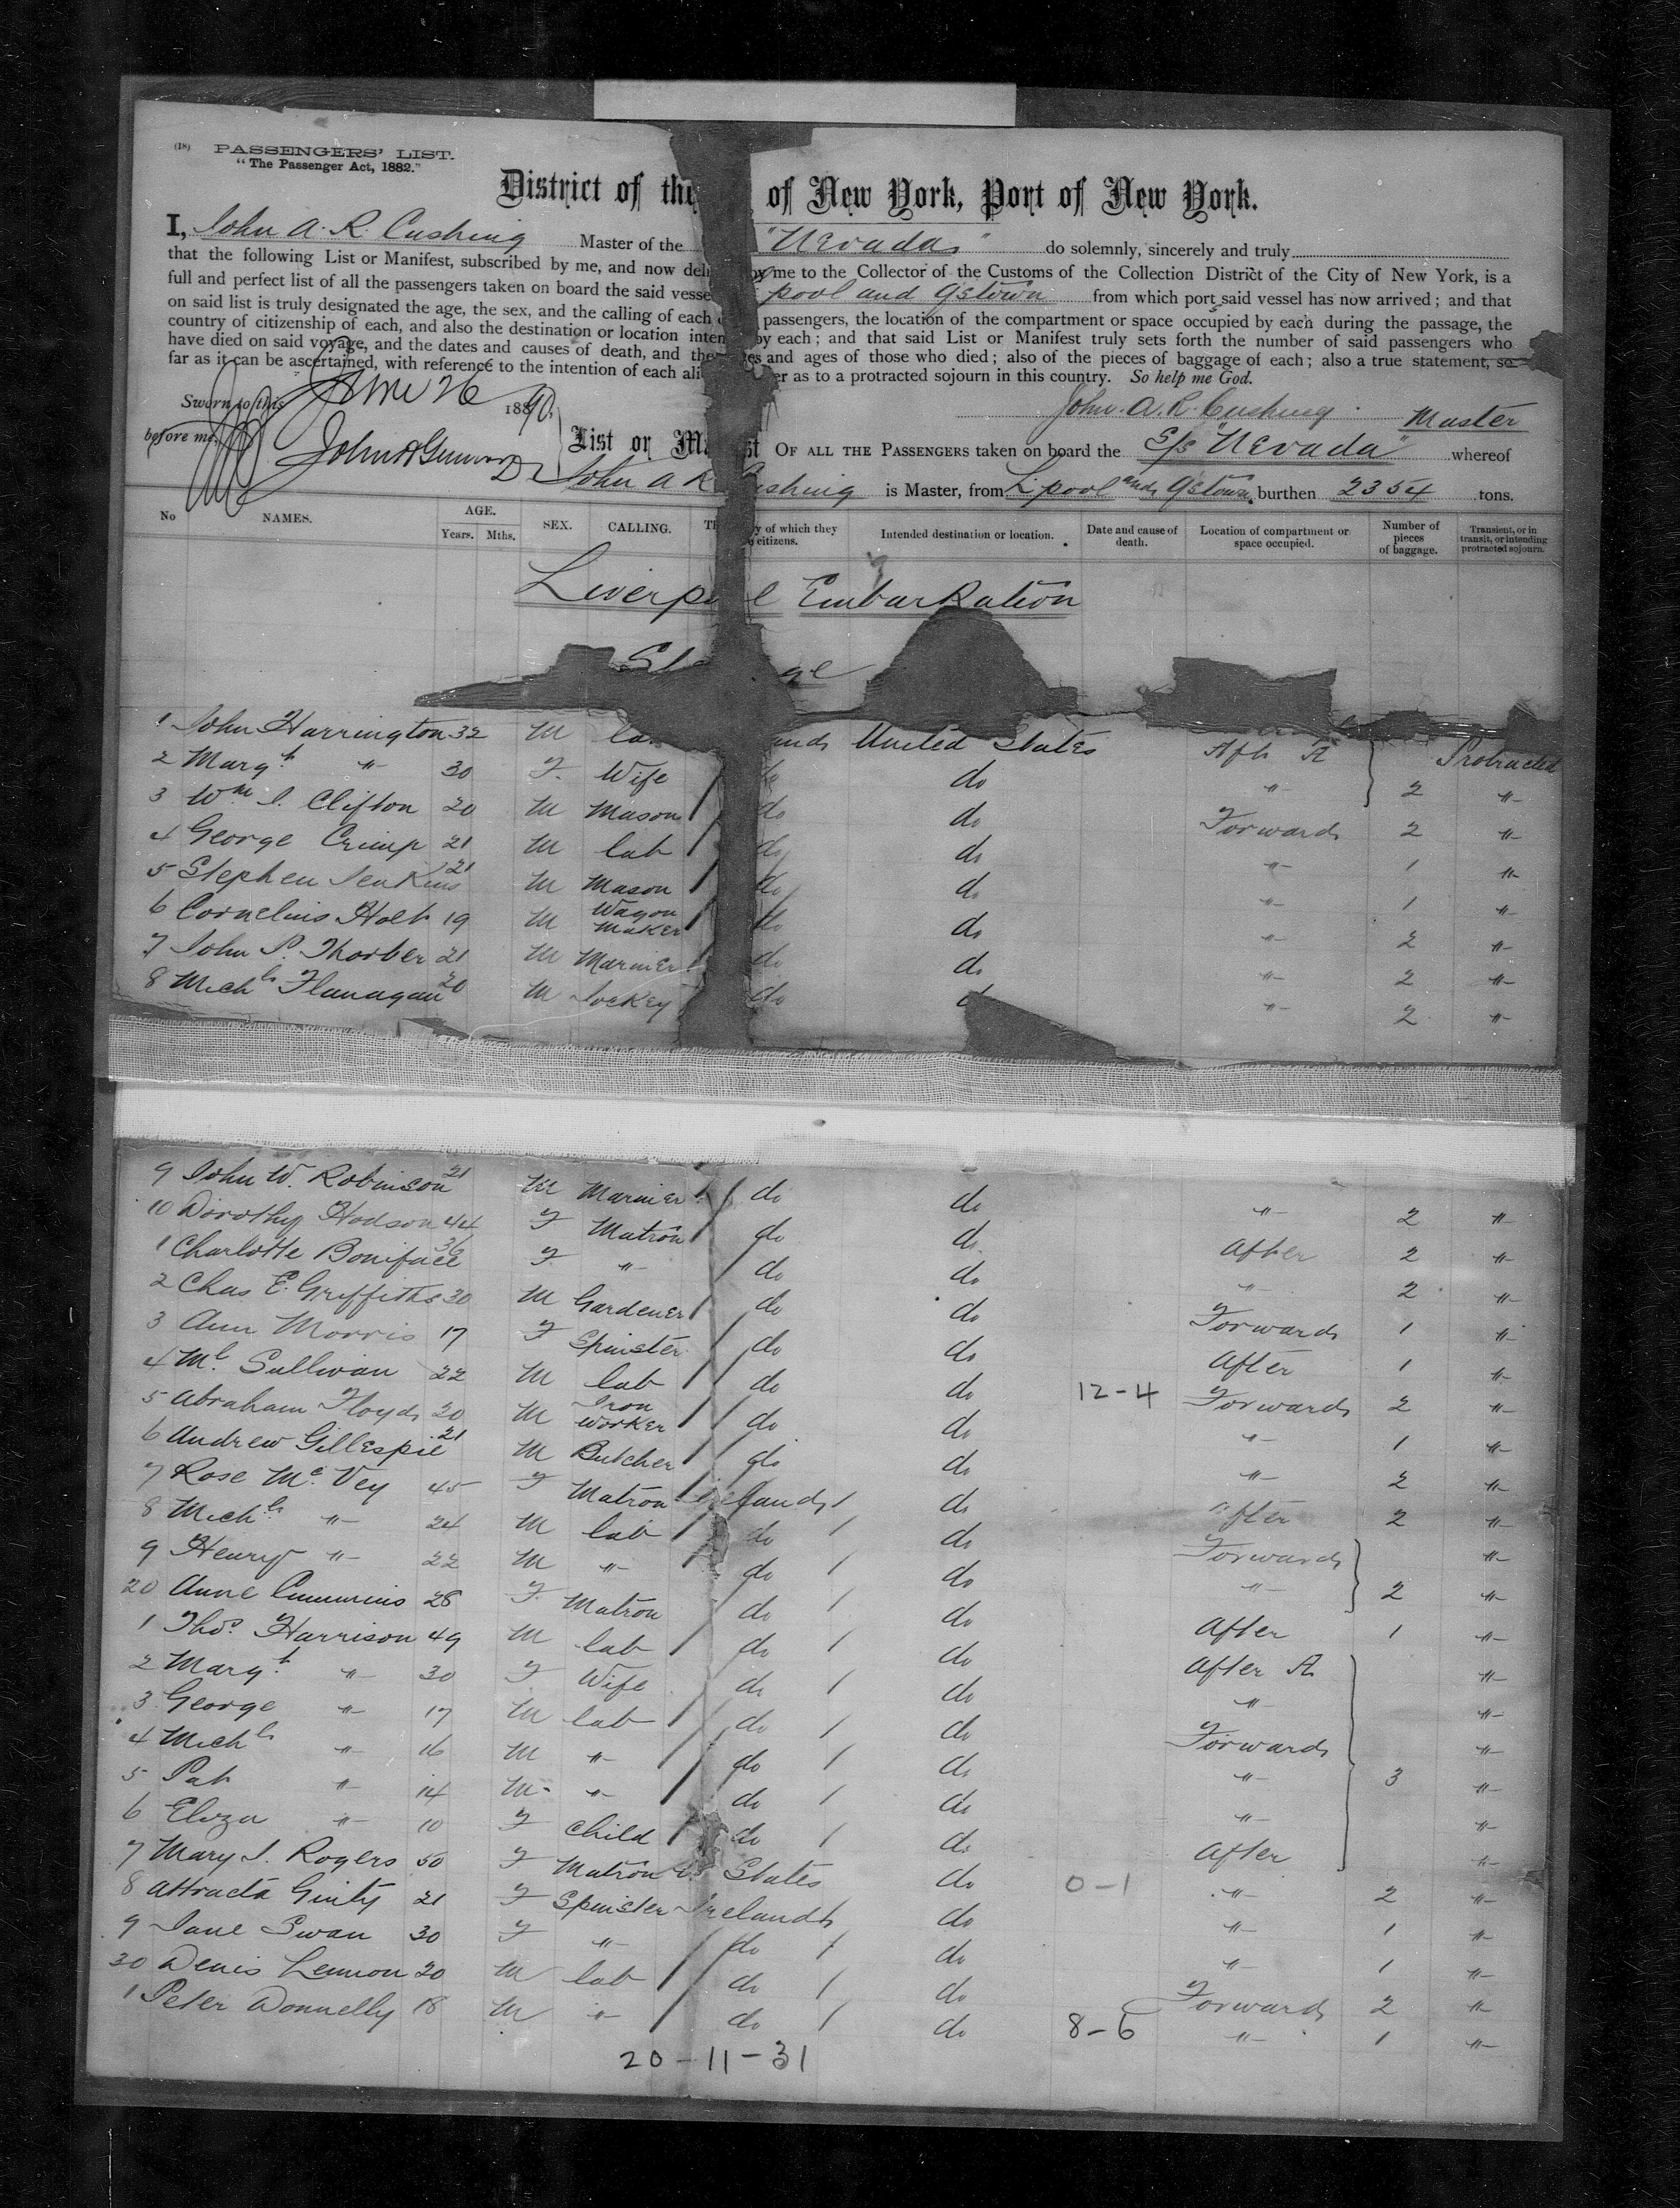 (18) PASSENGERS' LIST.
"The Passenger Act, 1882."
District of the of New York, Port of New York.
I, John A. R. Cushing Master of the "Nevada" do solemnly, sincerely and truly
that the following List or Manifest, subscribed by me, and now deli by me to the Collector of the Customs of the Collection District of the City of New York, is a
full and perfect list of all the passengers taken on board the said vesse pool and Qstown from which port said vessel has now arrived; and that
on said list is truly designated the age, the sex, and the calling of each passengers, the location of the compartment or space occupied by each during the passage, the
country of citizenship of each, and also the destination or location inten by each; and that said List or Manifest truly sets forth the number of said passengers who
have died on said voyage, and the dates and causes of death, and the es and ages of those who died; also of the pieces of baggage of each; also a true statement, so
far as it can be ascertained, with reference to the intention of each ali er as to a protracted sojourn in this country. So help me God.
Sworn to this June 26 1890, John. A. R. Cushing. Master
before me,
List or Ma st OF ALL THE PASSENGERS taken on board the S/s "Nevada" whereof
John A R Cushing is Master, from L'pool and Qstown, burthen 2354 tons.
No NAMES. AGE. Years. Mths. SEX. CALLING. Th y of which they citizens. Intended destination or location. Date and cause of death. Location of compartment or space occupied. Number of pieces of baggage. Transient, or in transit, or intending protracted sojourn.
Liverp l Embarkation
St ge
1 John Harrington 32 M la ands United States Aft A Protracted
2 Margt " 30 F. Wife do do " 2 "
3 Wm J. Clifton 20 M Mason do do Forwards 2 "
4 George Crimp 21 M lab do do " 1 "
5 Stephen Jenkins 21 M Mason do do " 1 "
6 Cornelius Holt 19 M Wagon Maker do do " 2 "
7 John P. Thorber 21 M Marnier do do " 2 "
8 Michl Flanagan 20 M Jockey do d " 2 "
9 John W. Robinson 21 M Marnier do do " 2 "
10 Dorothy Hodson 44 F Matron do do After 2 "
1 Charlotte Boniface 36 F " do do " 2 "
2 Chas E. Griffiths 30 M Gardener do do Forwards 1 "
3 Ann Morris 17 F Spinster do do After 1 "
4 Ml Sullivan 22 M lab do do 12-4 Forwards 2 "
5 Abraham Floyd 20 M Iron Worker do do " 1 "
6 Andrew Gillespie 21 M Butcher do do " 2 "
7 Rose McVey 45 F Matron Ireland do After 2 "
8 Michl " 24 M lab do do Forwards "
9 Henry " 22 M " do do " 2 "
20 Anne Cummins 28 F. Matron do do After 1 "
1 Thos. Harrison 49 M lab do do After A "
2 Margt " 30 F Wife do do " "
3 George " 17 M lab do do Forwards "
4 Michl " 16 M " do do " 3 "
5 Pat " 14 M " do do " "
6 Eliza " 10 F Child do do After "
7 Mary J. Rogers 50 F Matron U. States do 0-1 " 2 "
8 Attracta Ginty 21 F Spinster Ireland do " 1 "
9 Jane Swan 30 F " do do " 1 "
30 Denis Lennon 20 M lab do do Forwards 2 "
1 Peter Donnelly 18 M " do do 8-6 " 1 "
20-11-31